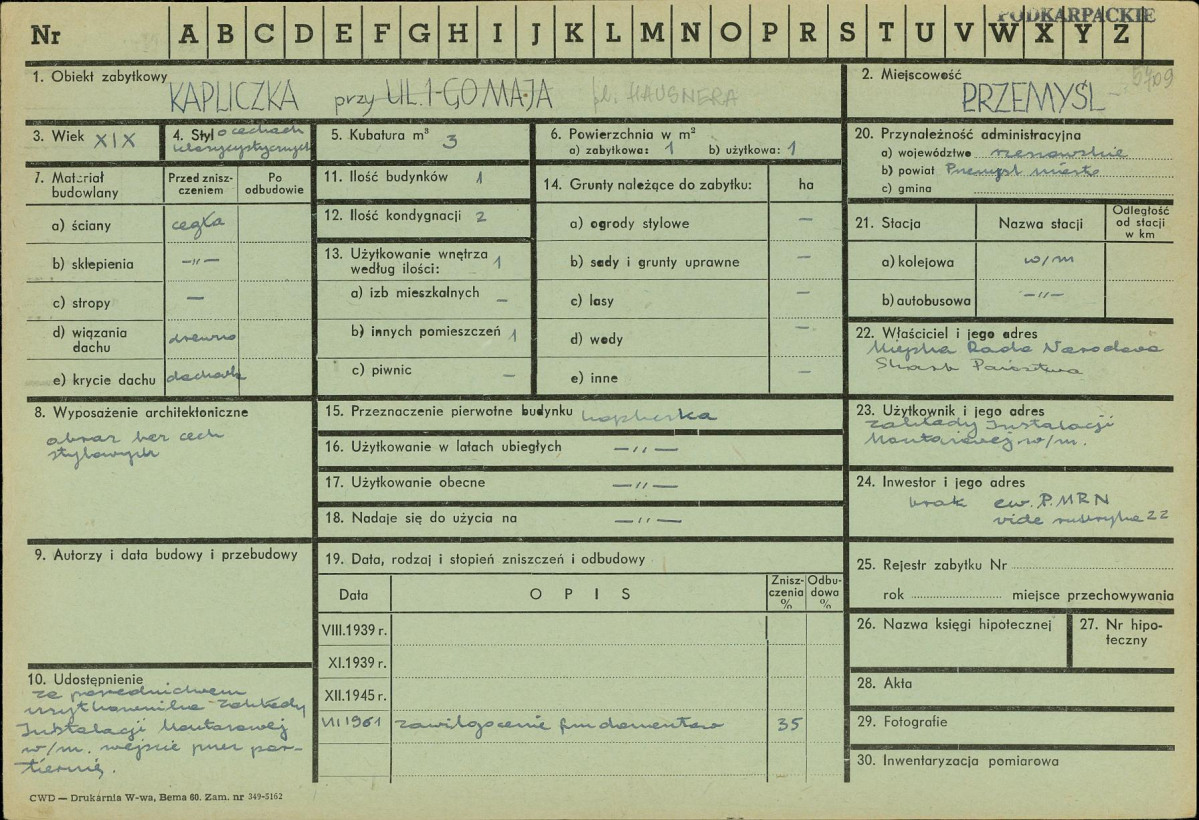 PODKARPACKIE
Nr A B C D E F G H I J K L M N O P R S T U V W X Y Z
1. Obiekt zabytkowy KAPLICZKA przy UL. 1-GO MAJA pl. HAUSNERA
2. Miejscowość PRZEMYŚL 5709
3. Wiek XIX
4. Styl o cechach
klasycystycznych
5. Kubatura m³ 3
6. Powierzchnia w m²
a) zabytkowa: 1 b) użytkowa: 1
7. Materiał budowlany
Przed zniszczeniem
Po odbudowie
a) ściany cegła
b) sklepienia —„—
c) stropy —
d) wiązania dachu drewno
e) krycie dachu dachówka
8. Wyposażenie architektoniczne
obraz bez cech
stylowych
9. Autorzy i data budowy i przebudowy
10. Udostępnienie
za pośrednictwem
użytkownika Zakłady
Instalacji Montażowej
w/m. wejście przez por-
tiernię.
11. Ilość budynków 1
12. Ilość kondygnacji 2
13. Użytkowanie wnętrza 1
według ilości:
a) izb mieszkalnych —
b) innych pomieszczeń 1
c) piwnic —
14. Grunty należące do zabytku: ha
a) ogrody stylowe —
b) sady i grunty uprawne —
c) lasy —
d) wody —
e) inne —
15. Przeznaczenie pierwotne budynku kapliczka
16. Użytkowanie w latach ubiegłych —„—
17. Użytkowanie obecne —„—
18. Nadaje się do użycia na —„—
19. Data, rodzaj i stopień zniszczeń i odbudowy
Data OPIS Zniszczenia % Odbudowa %
VIII.1939 r.
XI.1939 r.
XII.1945 r.
VII 1961 zawilgocenie fundamentów 35
20. Przynależność administracyjna
a) województwo rzeszowskie
b) powiat Przemyśl miasto
c) gmina
21. Stacja Nazwa stacji Odległość od stacji w km
a) kolejowa w/m
b) autobusowa —„—
22. Właściciel i jego adres
Miejska Rada Narodowa
Skarb Państwa
23. Użytkownik i jego adres
Zakłady Instalacji
Montażowej w/m.
24. Inwestor i jego adres
brak ew. P.MRN
vide rubryka 22
25. Rejestr zabytku Nr
rok miejsce przechowywania
26. Nazwa księgi hipotecznej
27. Nr hipo-
teczny
28. Akta
29. Fotografie
30. Inwentaryzacja pomiarowa
CWD — Drukarnia W-wa, Bema 60. Zam. nr 349-5162